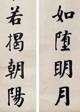 如堕明月
若揭朝陽